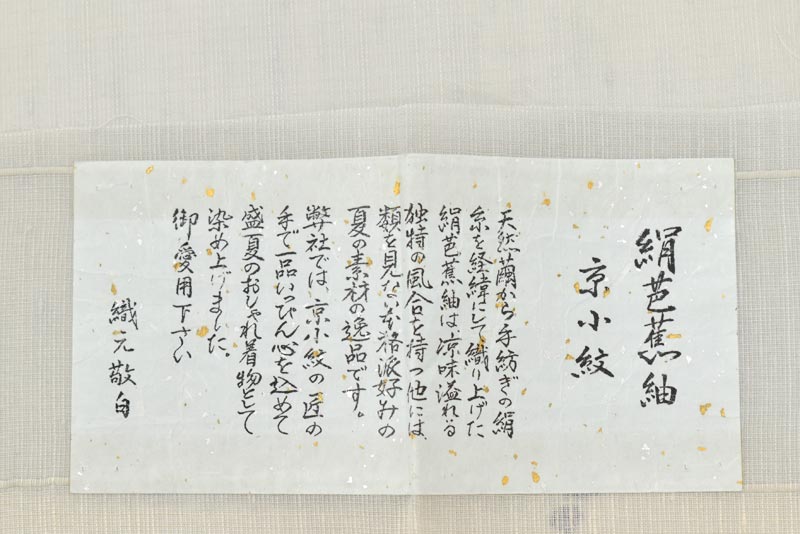 絹芭蕉紬
京小紋
天然繭から手紡ぎの絹
糸を経緯にして織り上げた
絹芭蕉紬は、涼味溢れる
独特の風合を持つ他には、
類を見ない本格派好みの
夏の素材の逸品です。
弊社では、京小紋の匠の
手で一品いっぴん心を込めて
盛夏のおしゃれ着物として
染め上げました。
御愛用下さい
織元敬白